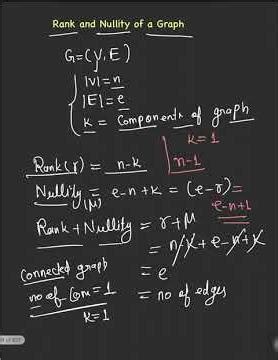 Rank and Nullity of a Graph
G=(V,E)
|V|=n
|E|=e
k = Components of graph
k=1
n-1
Rank(r) = n-k
Nullity = e-n+k = (e-r) =
(μ)
e-n+1
Rank + Nullity = r+μ
= n/-k+e-n+k
connected graph
= e
no of Com = 1
= no of edges
k=1